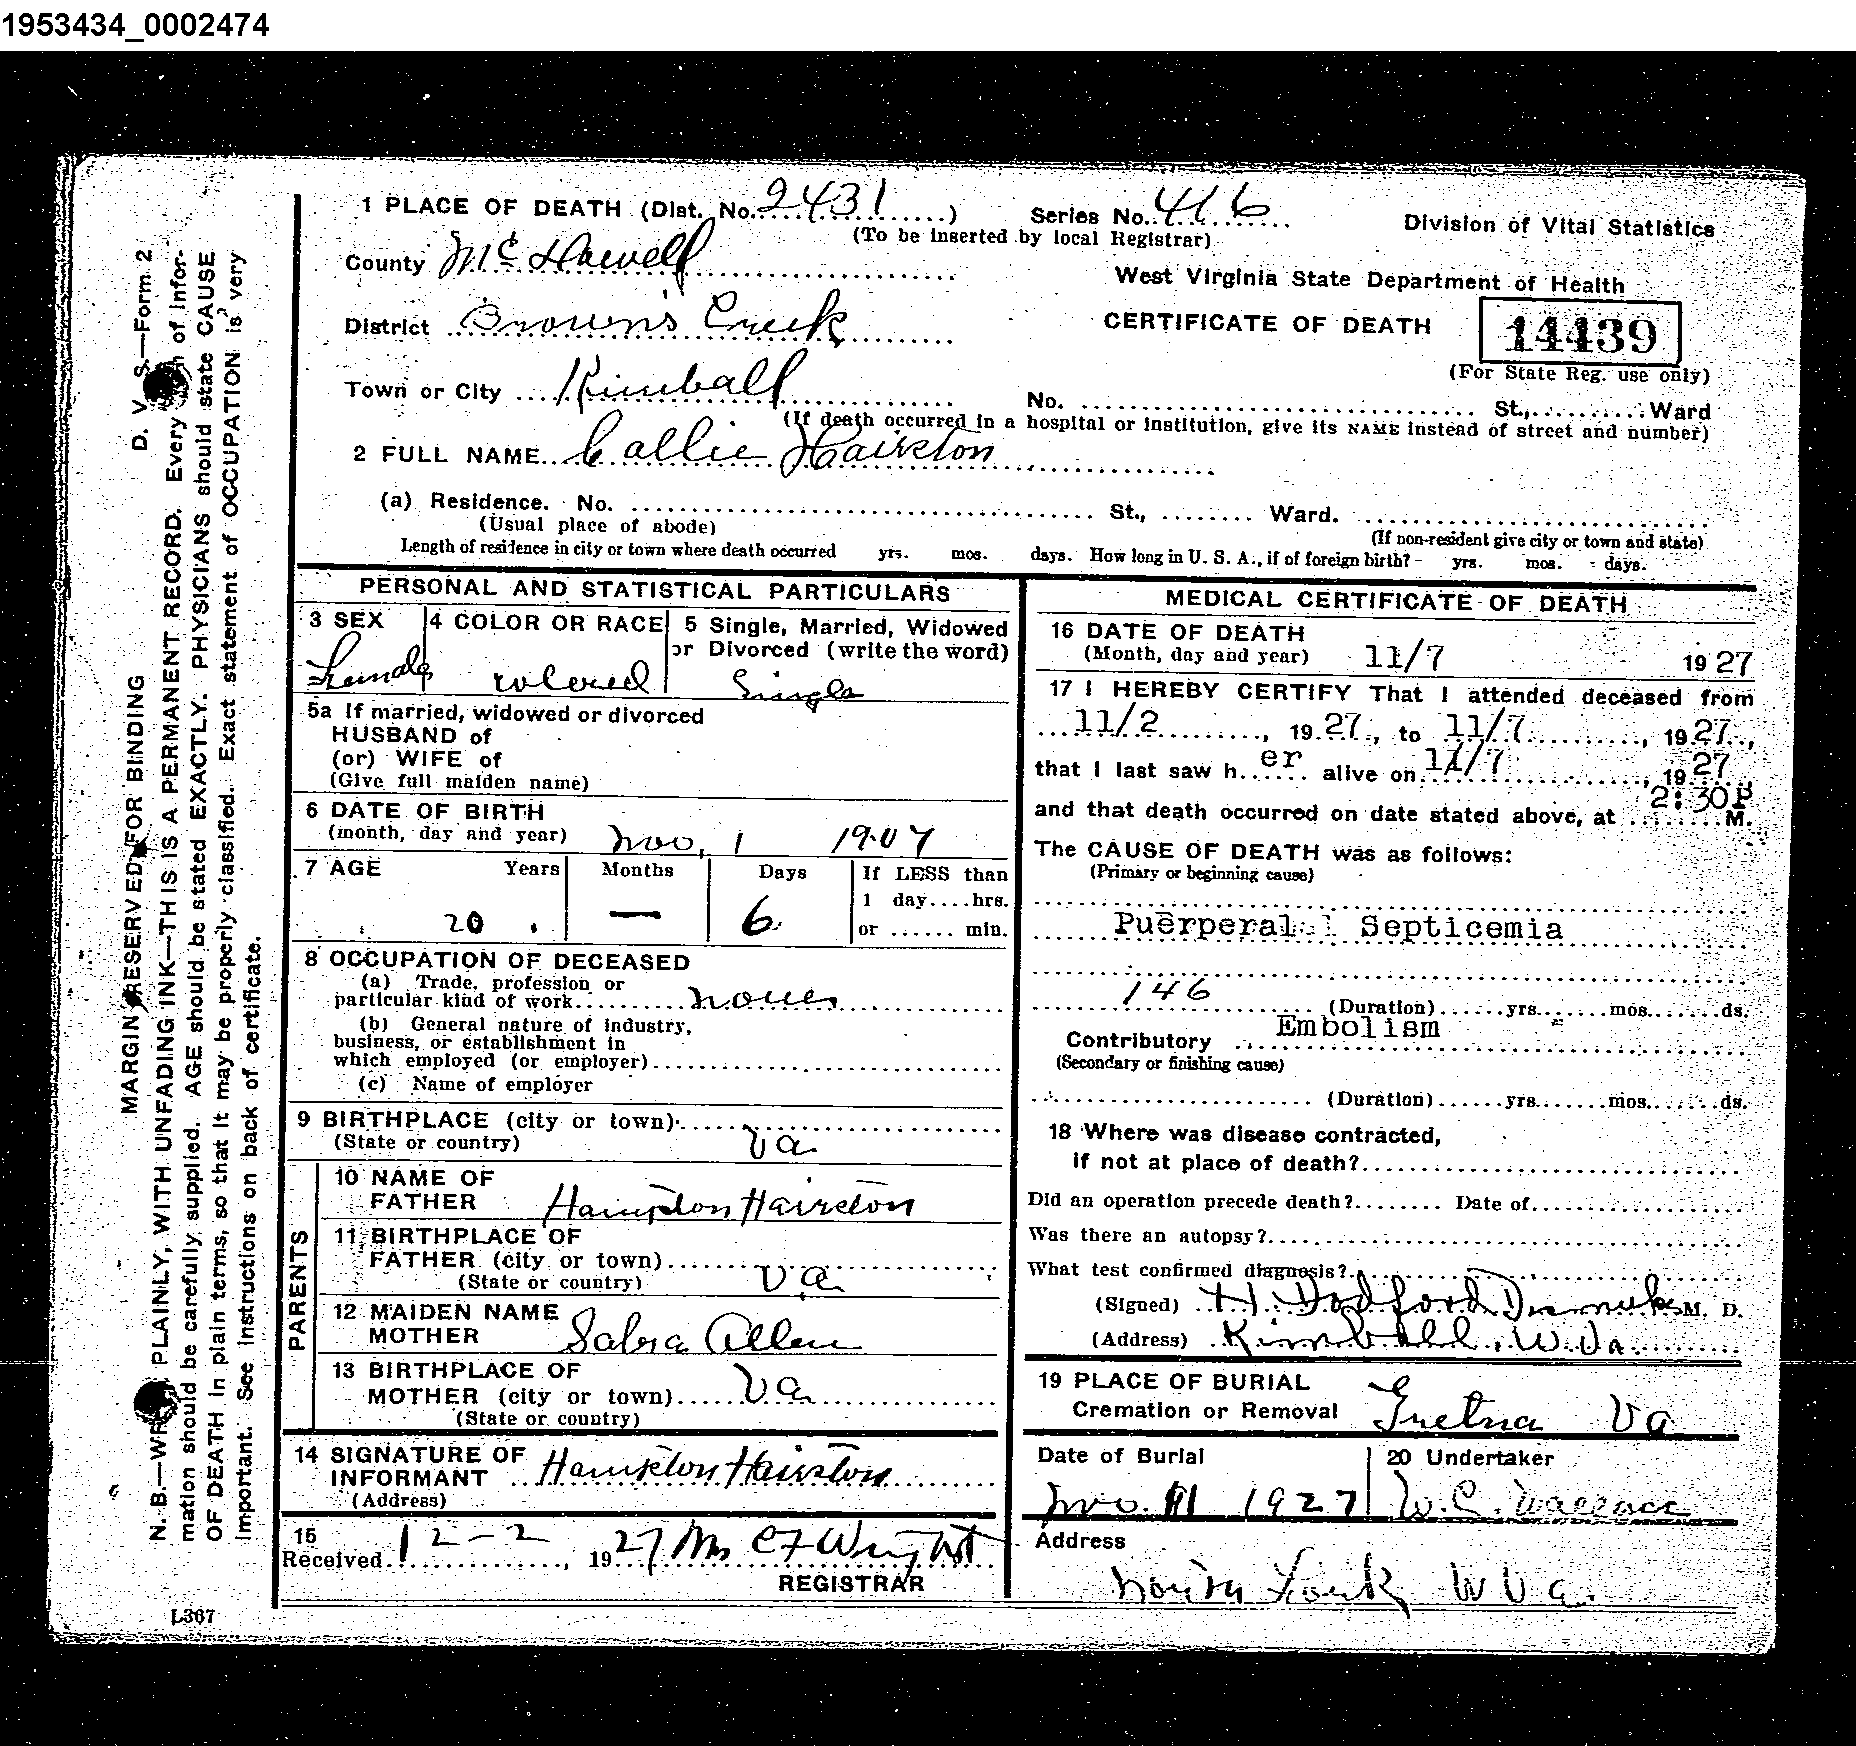 1953434_0002474
1 PLACE OF DEATH (Dist. No. 2431 ) Series No. 416
(To be inserted by local Registrar)
Division of Vital Statistics
County McDowell
West Virginia State Department of Health
District Browns Creek
CERTIFICATE OF DEATH 14439
(For State Reg. use only)
Town or City Kimball
No. St., Ward
(If death occurred in a hospital or institution, give its NAME instead of street and number)
2 FULL NAME Callie Hairston
(a) Residence. No. St., Ward.
(Usual place of abode) (If non-resident give city or town and state)
Length of residence in city or town where death occurred yrs. mos. days. How long in U. S. A., if of foreign birth? yrs. mos. days.
PERSONAL AND STATISTICAL PARTICULARS
3 SEX 4 COLOR OR RACE 5 Single, Married, Widowed
or Divorced (write the word)
Female colored Single
5a If married, widowed or divorced
HUSBAND of
(or) WIFE of
(Give full maiden name)
6 DATE OF BIRTH
(month, day and year) Nov. 1 1907
7 AGE Years Months Days If LESS than
1 day....hrs.
20 — 6 or ...... min.
8 OCCUPATION OF DECEASED
(a) Trade, profession or
particular kind of work none
(b) General nature of industry,
business, or establishment in
which employed (or employer)
(c) Name of employer
9 BIRTHPLACE (city or town)
(State or country) Va
PARENTS
10 NAME OF
FATHER Hampton Hairston
11 BIRTHPLACE OF
FATHER (city or town)
(State or country) Va
12 MAIDEN NAME
MOTHER Sabra Allen
13 BIRTHPLACE OF
MOTHER (city or town) Va
(State or country)
14 SIGNATURE OF
INFORMANT Hampton Hairston
(Address)
15
Received 12-2, 1927 C F Wright
REGISTRAR
MEDICAL CERTIFICATE OF DEATH
16 DATE OF DEATH
(Month, day and year) 11/7 1927
17 I HEREBY CERTIFY That I attended deceased from
11/2, 1927, to 11/7, 1927,
that I last saw her alive on 11/7, 1927
and that death occurred on date stated above, at 2:30P M.
The CAUSE OF DEATH was as follows:
(Primary or beginning cause)
Puerperal Septicemia
146 (Duration) yrs. mos. ds.
Contributory Embolism
(Secondary or finishing cause)
(Duration) yrs. mos. ds.
18 Where was disease contracted,
if not at place of death?
Did an operation precede death? Date of
Was there an autopsy?
What test confirmed diagnosis?
(Signed) H. M. D.
(Address) Kimball, W. Va
19 PLACE OF BURIAL
Cremation or Removal Gretna Va
Date of Burial 20 Undertaker
Nov. 11 1927 W. C. Wallace
Address
North Fork W Va.
MARGIN RESERVED FOR BINDING D. V. S.—Form 2
N. B.—WRITE PLAINLY, WITH UNFADING INK—THIS IS A PERMANENT RECORD. Every item of infor-
mation should be carefully supplied. AGE should be stated EXACTLY. PHYSICIANS should state CAUSE
OF DEATH in plain terms, so that it may be properly classified. Exact statement of OCCUPATION is very
important. See instructions on back of certificate.
L367